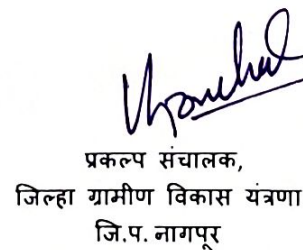 प्रकल्प संचालक,
जिल्हा ग्रामीण विकास यंत्रणा
जि.प. नागपूर